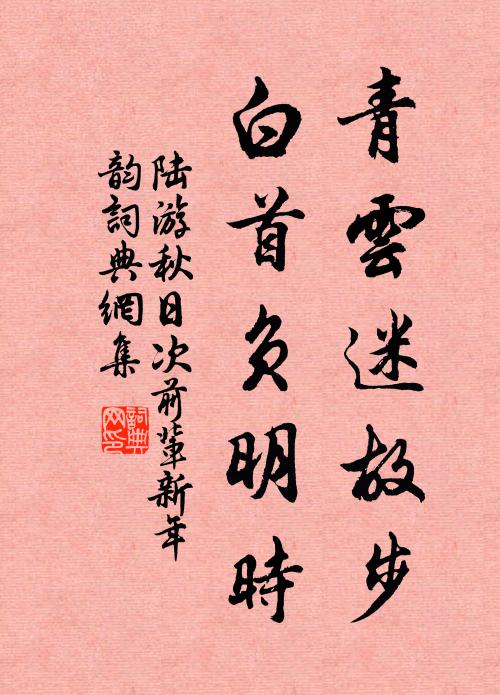 青雲迷故步
白首負明時
陆游秋日次前輩新年
韵詞典網集
詞典
网印